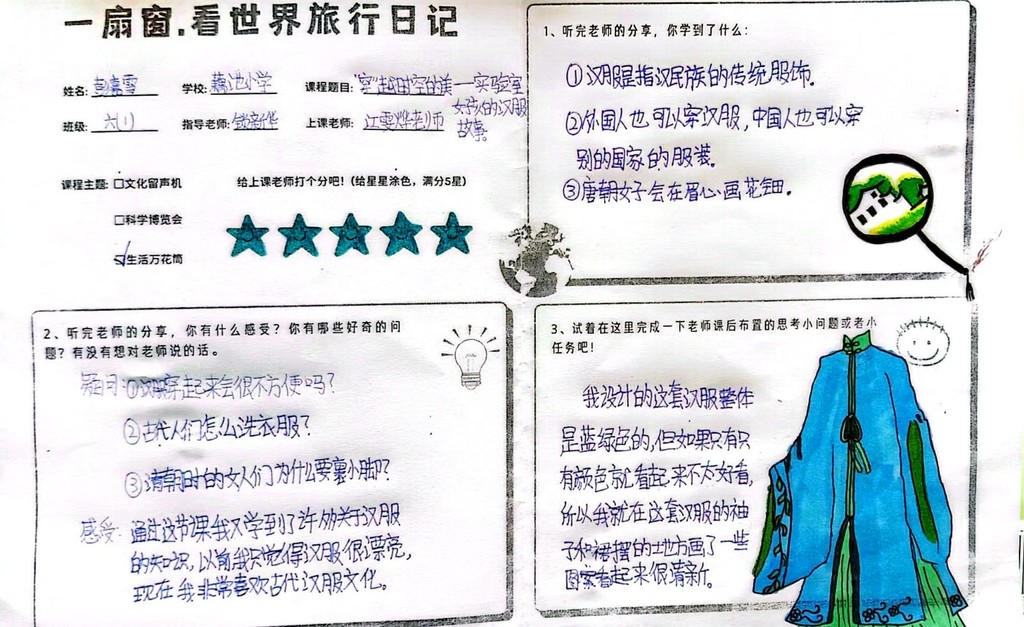 一扇窗.看世界旅行日记
姓名: 彭嘉雪 学校: 藕池小学 课程题目: "穿"越时空的美——实验室
女孩的汉服
故事.
班级: 六(1) 指导老师: 新华 上课老师: 江雯烨老师
课程主题: □文化留声机
□科学博览会
☑生活万花筒
给上课老师打个分吧!(给星星涂色，满分5星)
1、听完老师的分享，你学到了什么:
①汉服是指汉民族的传统服饰。
②外国人也可以穿汉服,中国人也可以穿
别的国家的服装。
③唐朝女子会在眉心画花钿。
2、听完老师的分享，你有什么感受？你有哪些好奇的问
题？有没有想对老师说的话。
疑问:①汉服穿起来会很不方便吗?
②古代人们怎么洗衣服?
③清朝时的女人们为什么要裹小脚?
感受:通过这节课我又学到了许多关于汉服
的知识,以前我只觉得汉服很漂亮,
现在我非常喜欢古代汉服文化。
3、试着在这里完成一下老师课后布置的思考小问题或者小
任务吧!
我设计的这套汉服整体
是蓝绿色的,但如果只有只
有颜色就看起来不太好看,
所以我就在这套汉服的袖
子和裙摆的地方画了一些
图案看起来很清新。